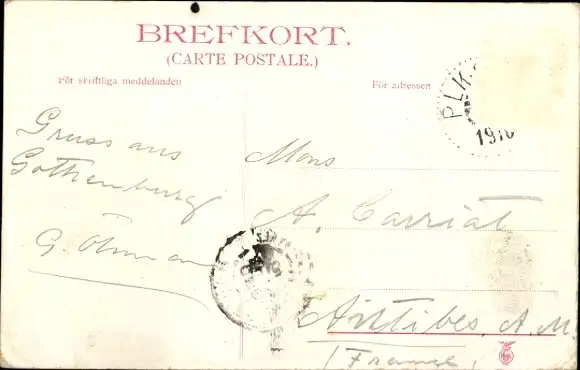 BREFKORT.
(CARTE POSTALE.)
För skriftliga meddelanden
För adressen
PLK.
1910
Gruss aus
Gothenburg
G. Öhman
Mons
A. Carriat
Antibes, A. M.
(France)